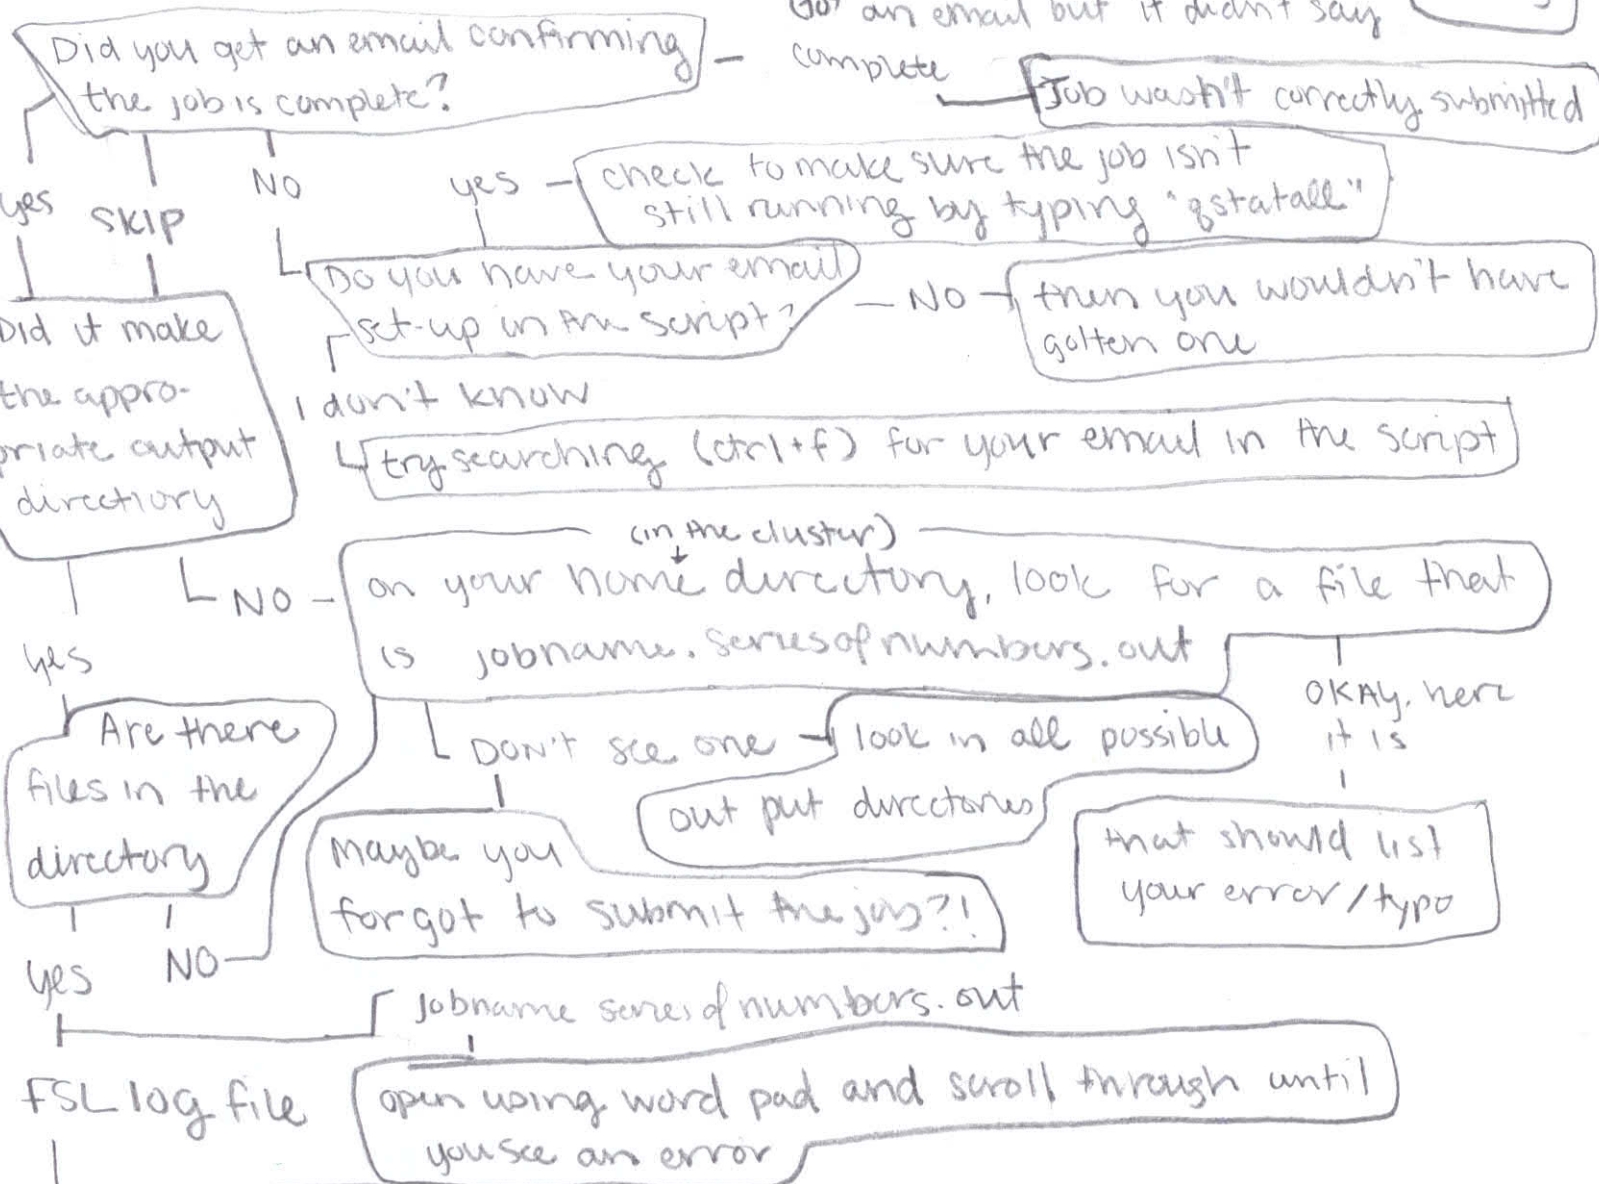 Got an email but it didn't say
complete
Did you get an email confirming
the job is complete?
Job wasn't correctly submitted
yes
SKIP
NO
yes
check to make sure the job isn't
still running by typing "qstatall"
Do you have your email
set-up in the script?
NO
then you wouldn't have
gotten one
Did it make
the appro-
priate output
directiory
I don't know
try searching (ctrl+f) for your email in the script
(in the cluster)
on your home directory, look for a file that
is jobname.seriesofnumbers.out
NO
yes
OKAY, here
it is
Are there
files in the
directory
DON'T see one
look in all possible
out put directories
Maybe you
forgot to submit the job?!
that should list
your error/typo
yes
NO
jobname seriesofnumbers.out
FSL log file
open using word pad and scroll through until
you see an error